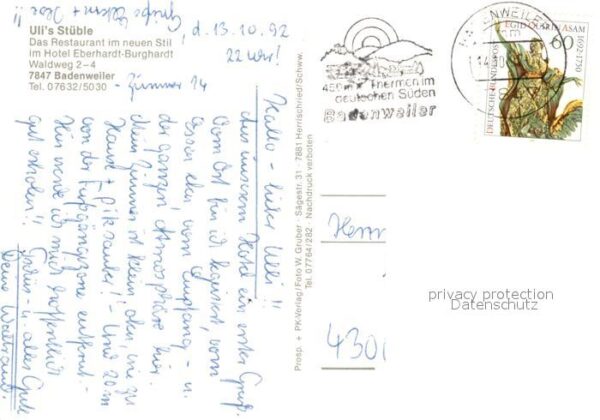 Grüße Eltern + Ilse !!
Uli's Stüble
Das Restaurant im neuen Stil
im Hotel Eberhardt-Burghardt
Waldweg 2-4
7847 Badenweiler
Tel. 07632/5030 - Zimmer 14
, d. 13.10.92
22 Uhr!
Hallo - lieber Ulli !!
Aus unserem Hotel ein erster Gruß.
Vom Ort bin ich begeistert, vom
Essen eben, vom Empfang - u.
der ganzen Atmosphäre hier.
Mein Zimmer ist klein aber, wie zu
Haus + piksauber! - Und 20 m
von der Fußgängerzone entfernt -
Hier werde ich mich hoffentlich
gut erholen!! Grüße u. alles Gute
Deine Waltraud
Prosp. + PK-Verlag/Foto W. Gruber · Sägestr. 31 · 7881 Herrischried/Schww.
Tel. 07764/282 · Nachdruck verboten
450 m Thermen im
deutschen Süden
Badenweiler
BADENWEILER
EGID QUIRIN ASAM
1692-1750
60
DEUTSCHE BUNDESPOST
Herrn
4300
privacy protection
Datenschutz